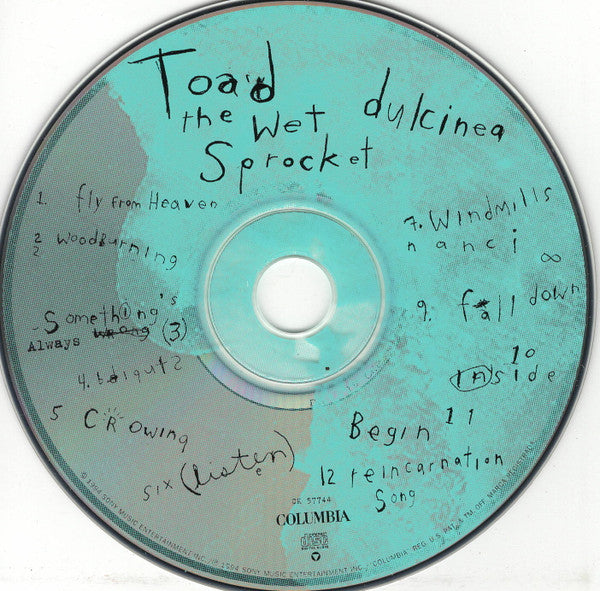 Toad
the Wet
Sprocket
dulcinea
1. fly from Heaven
2 woodburning
2
- Something's
Always wrong (3)
4. stupid
5 Crowing
six (listen)
e
7. Windmills
nanci ∞
9. fall down
10
Inside
Begin 11
12 reincarnation
Song
CK 57744
COLUMBIA
COMPACT
disc
DIGITAL AUDIO
© 1994 SONY MUSIC ENTERTAINMENT INC. / ℗ 1994 SONY MUSIC ENTERTAINMENT INC. / "COLUMBIA" REG. U.S. PAT. & TM. OFF. MARCA REGISTRADA.